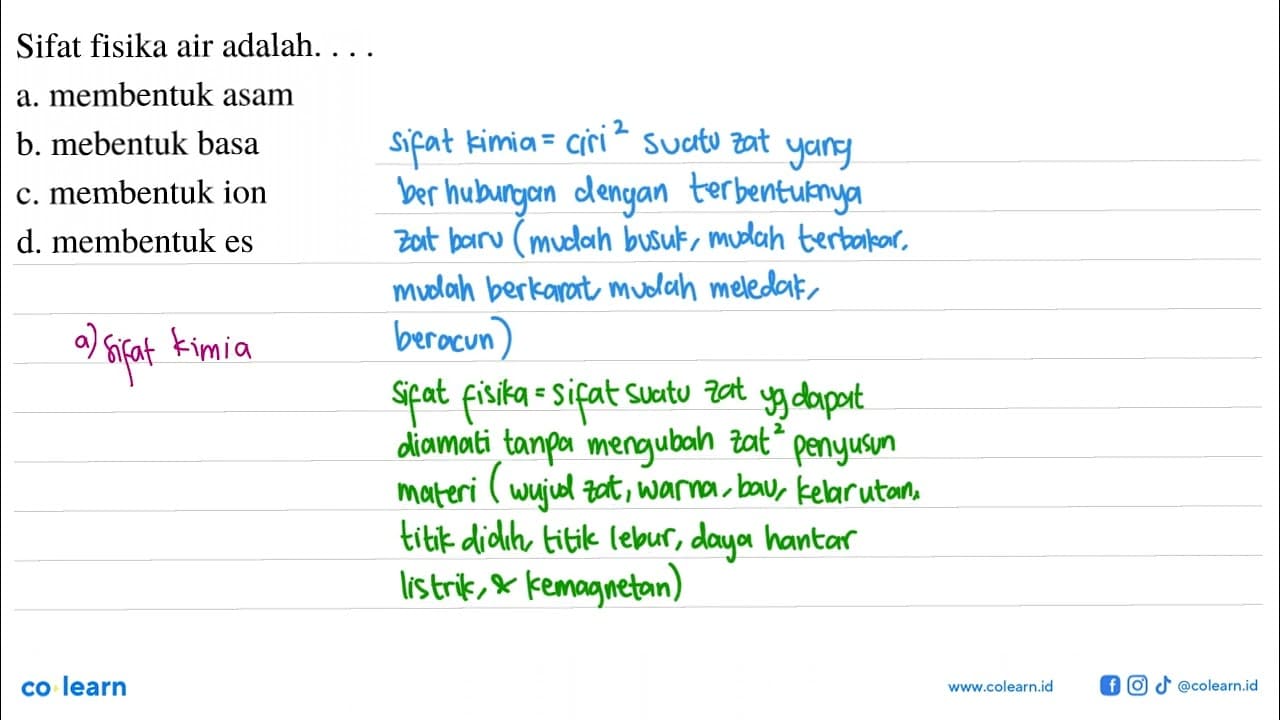 Sifat fisika air adalah. . . .
a. membentuk asam
b. mebentuk basa
c. membentuk ion
d. membentuk es
sifat kimia = ciri² suatu zat yang
berhubungan dengan terbentuknya
zat baru (mudah busuk, mudah terbakar,
mudah berkarat, mudah meledak,
beracun)
a) sifat kimia
sifat fisika = sifat suatu zat yg dapat
diamati tanpa mengubah zat² penyusun
materi (wujud zat, warna, bau, kelarutan,
titik didih, titik lebur, daya hantar
listrik, & kemagnetan)
co learn
www.colearn.id
@colearn.id